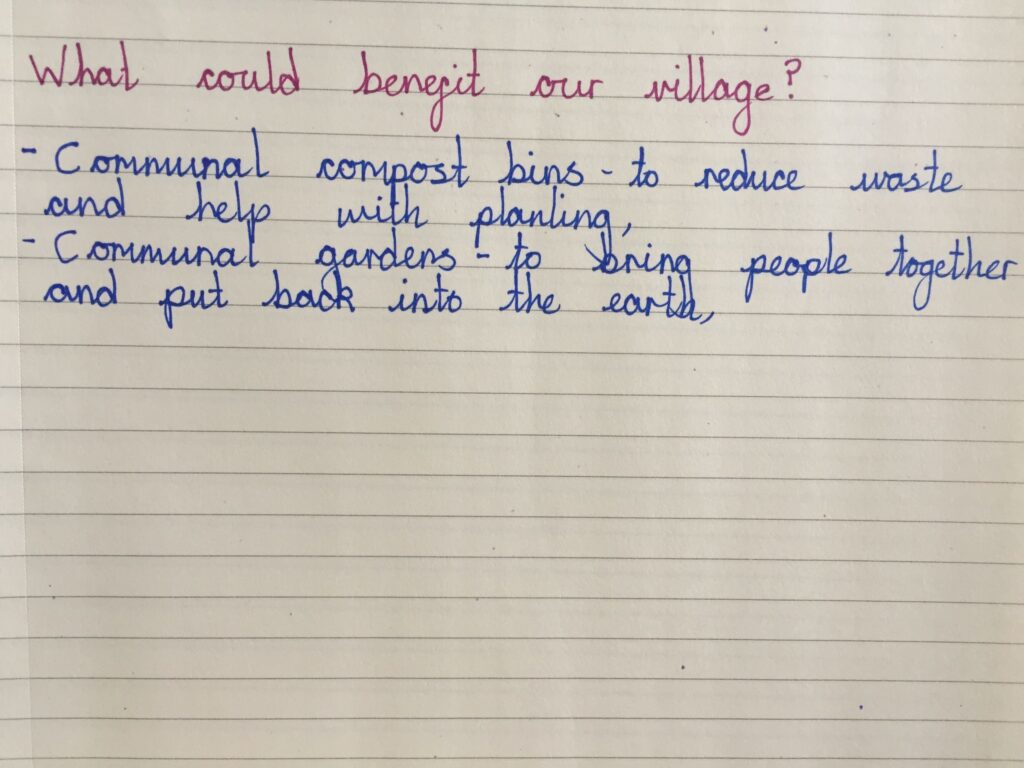 What could benefit our village?
- Communal compost bins - to reduce waste
and help with planting,
- Communal gardens - to bring people together
and put back into the earth,